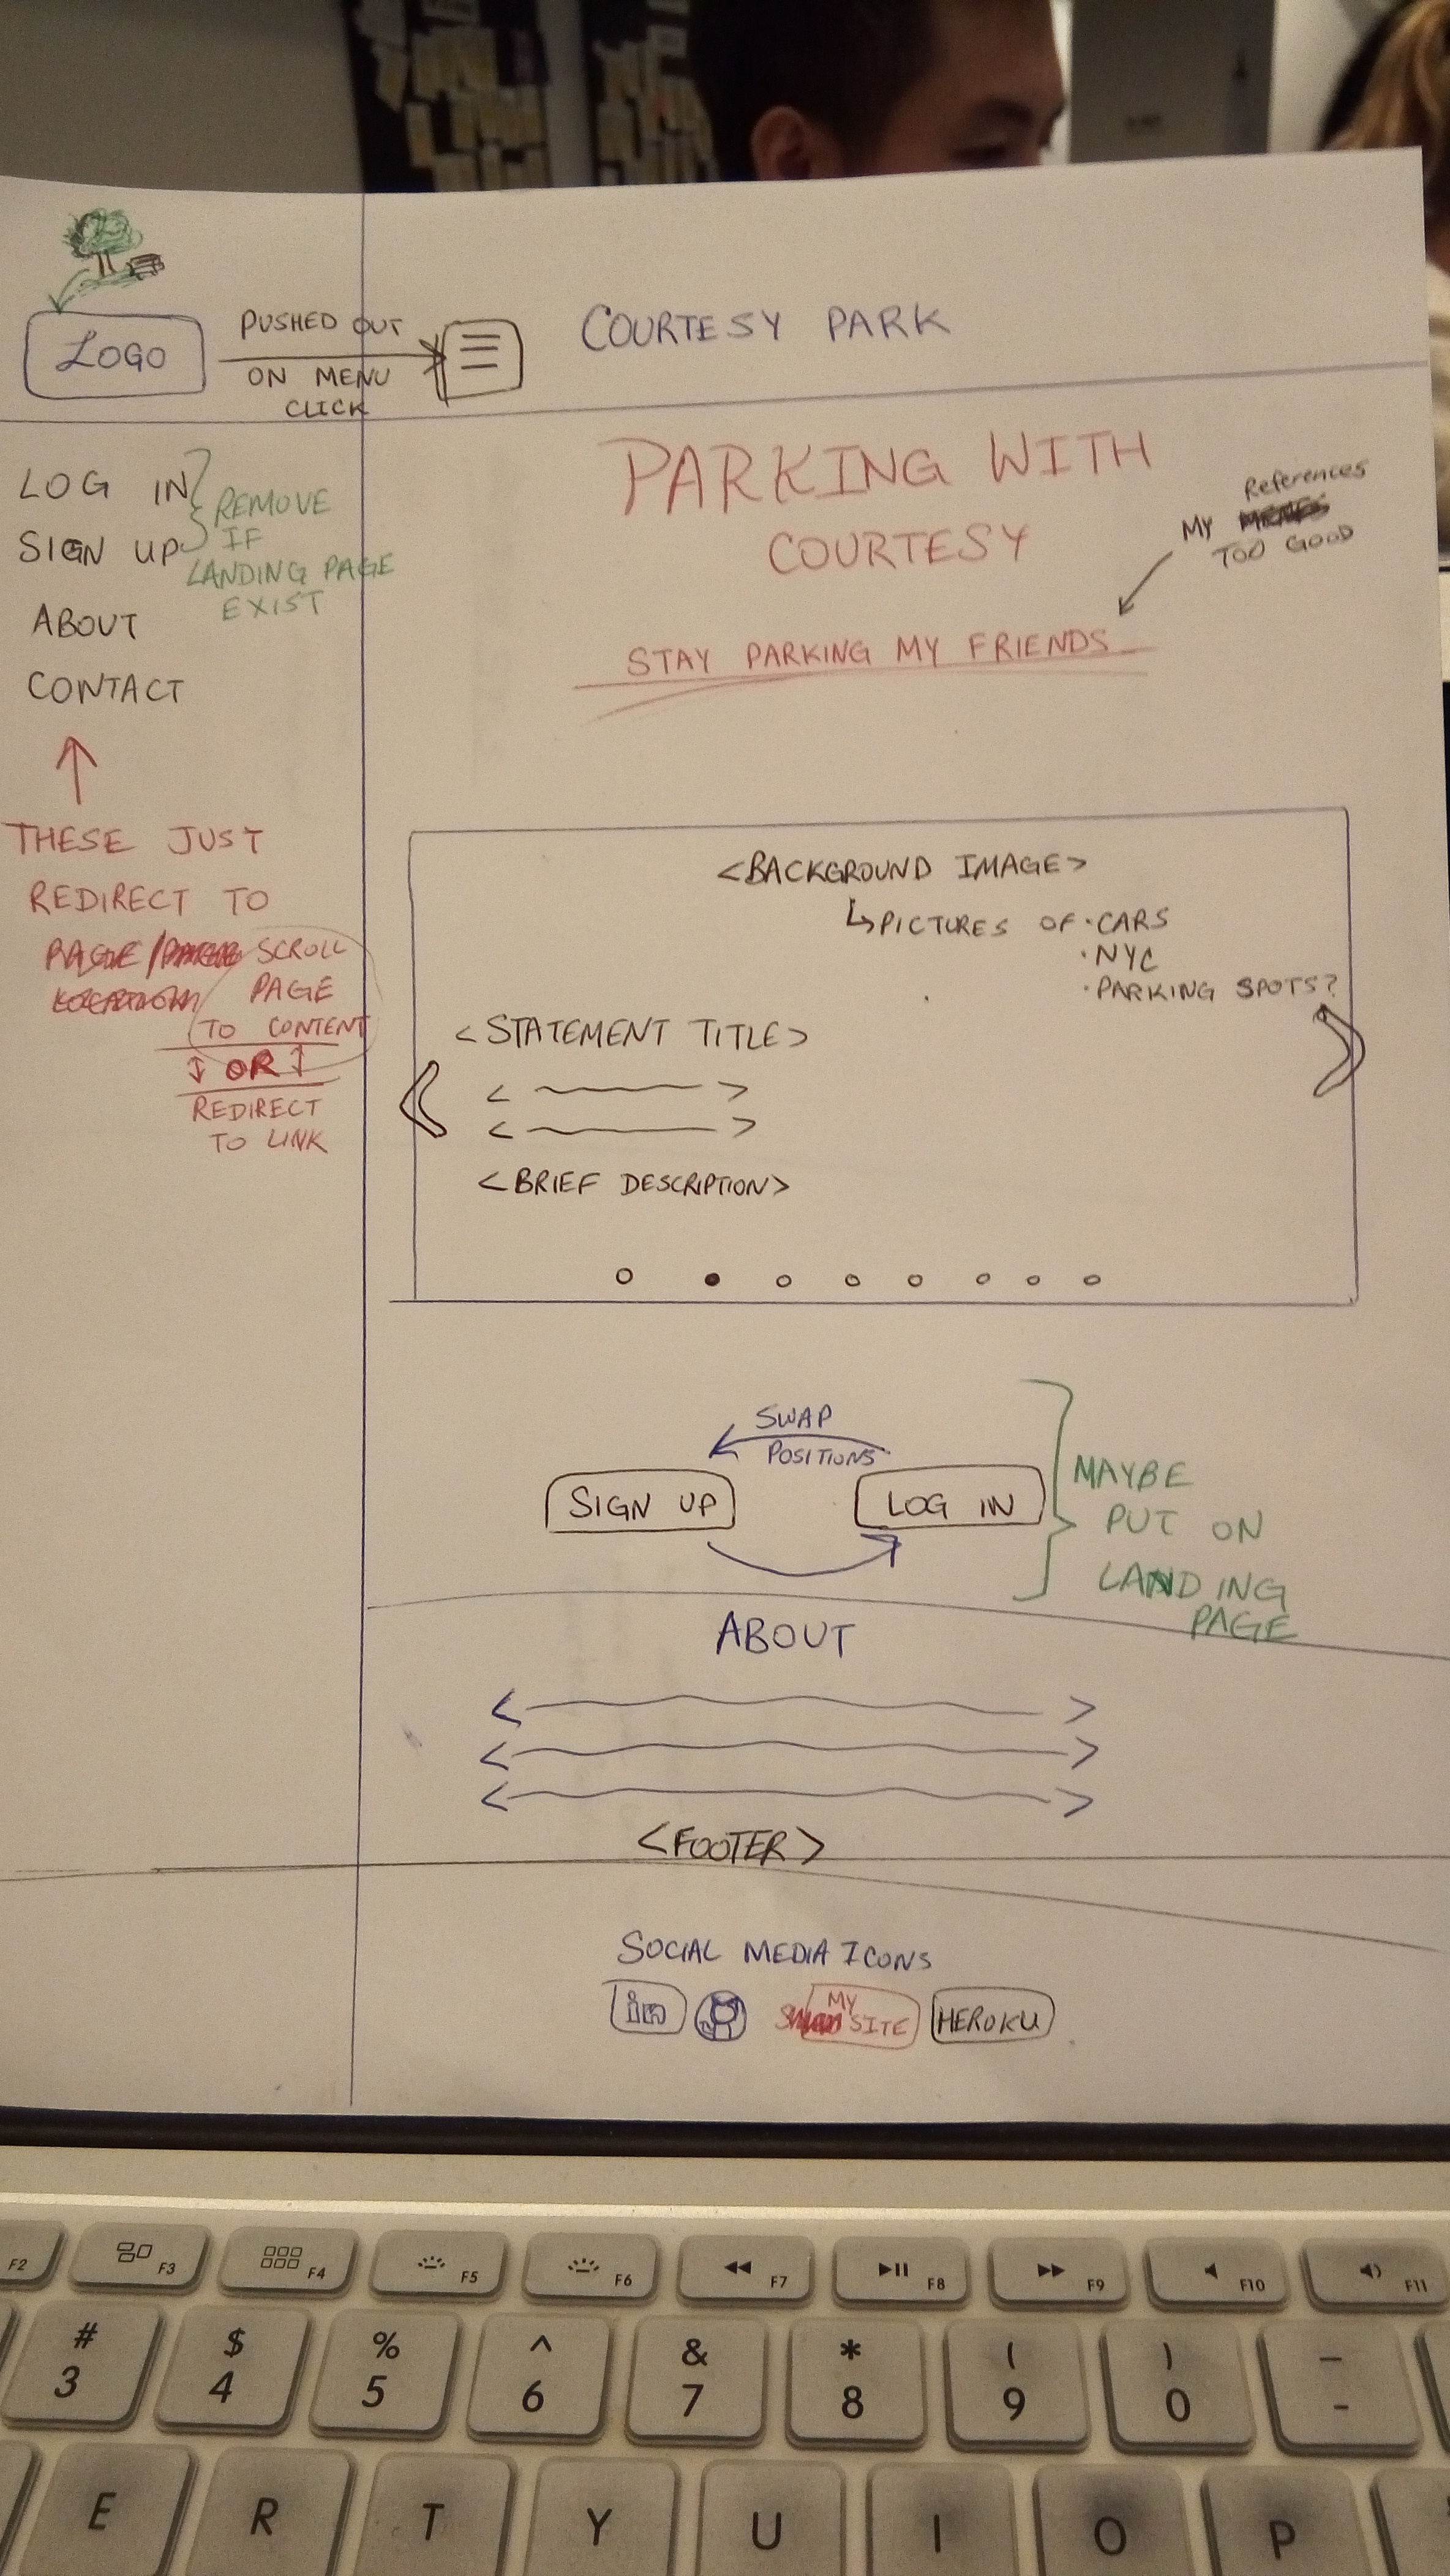 LOGO
PUSHED OUT
ON MENU
CLICK
COURTESY PARK
LOG IN
SIGN UP
REMOVE
IF
LANDING PAGE
EXIST
ABOUT
CONTACT
THESE JUST
REDIRECT TO
SCROLL
PAGE
TO CONTENT
OR
REDIRECT
TO LINK
PARKING WITH
COURTESY
References
MY
TOO GOOD
STAY PARKING MY FRIENDS
<BACKGROUND IMAGE>
PICTURES OF · CARS
· NYC
· PARKING SPOTS?
<STATEMENT TITLE>
<BRIEF DESCRIPTION>
SWAP
POSITIONS
SIGN UP
LOG IN
MAYBE
PUT ON
LANDING
PAGE
ABOUT
<FOOTER>
SOCIAL MEDIA ICONS
in
MY
SITE
HEROKU
F2 F3 F4 F5 F6 F7 F8 F9 F10 F11
# $ % ^ & * ( ) –
3 4 5 6 7 8 9 0 -
E R T Y U I O P